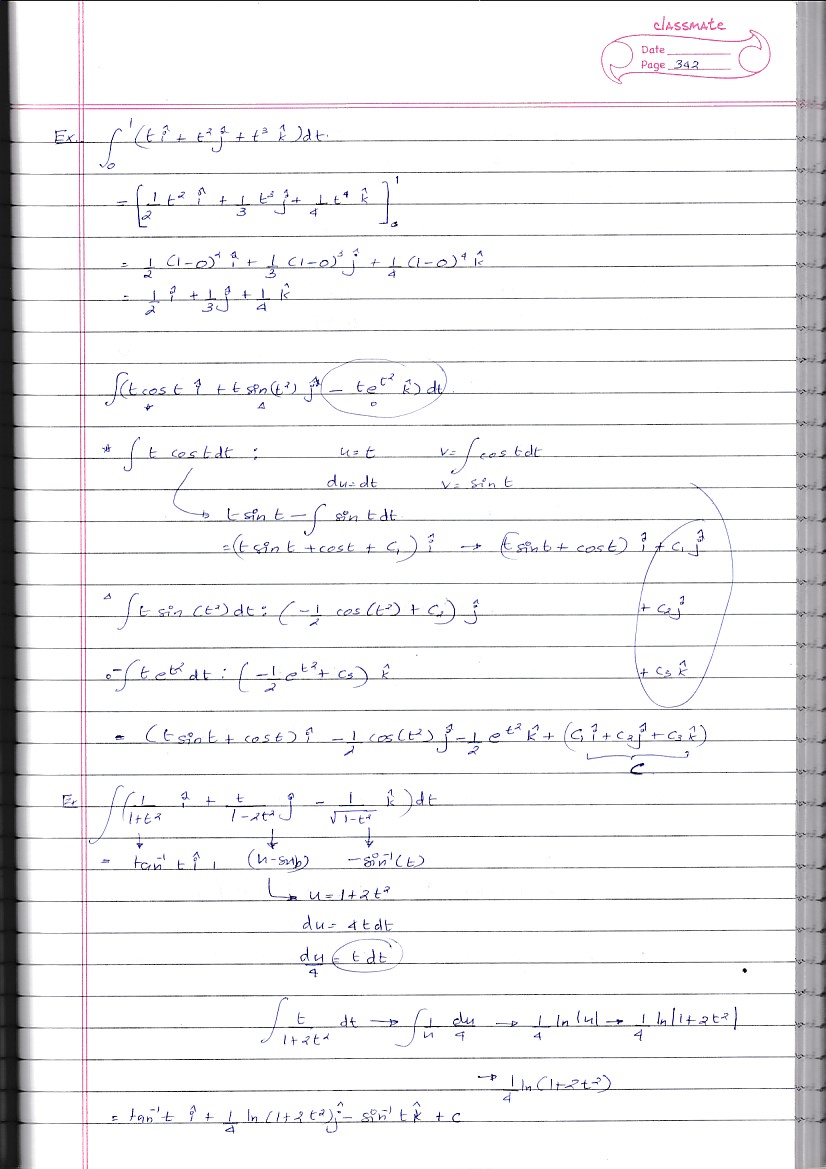 classmate
Date
Page 342
Ex. ∫₀¹ (t î + t² ĵ + t³ k̂) dt.
= [1/2 t² î + 1/3 t³ ĵ + 1/4 t⁴ k̂]₀¹
= 1/2 (1-0)² î + 1/3 (1-0)³ ĵ + 1/4 (1-0)⁴ k̂
= 1/2 î + 1/3 ĵ + 1/4 k̂
∫(t cos t î + t sin(t²) ĵ - te^t² k̂) dt.
* ∫ t cos t dt : u = t v = ∫ cos t dt
du = dt v = sin t
→ t sin t - ∫ sin t dt
= (t sin t + cos t + C₁) î → (t sin t + cos t) î + C₁ ĵ
Δ ∫ t sin (t²) dt : (-1/2 cos(t²) + C₂) ĵ + C₂ ĵ
○ -∫ t e^t² dt : (-1/2 e^t² + C₃) k̂ + C₃ k̂
= (t sin t + cos t) î - 1/2 cos(t²) ĵ - 1/2 e^t² k̂ + (C₁ î + C₂ ĵ + C₃ k̂)
C
Ex ∫(1/(1+t²) î + t/(1-2t²) ĵ - 1/√(1-t²) k̂) dt
= tan⁻¹ t î + (u-sub) - sin⁻¹(t)
↳ u = 1+2t²
du = 4t dt
du/4 = t dt
∫ t/(1+2t²) dt → ∫ 1/u du/4 → 1/4 ln|u| → 1/4 ln|1+2t²|
→ 1/4 ln(1+2t²)
= tan⁻¹ t î + 1/4 ln(1+2t²) ĵ - sin⁻¹ t k̂ + C